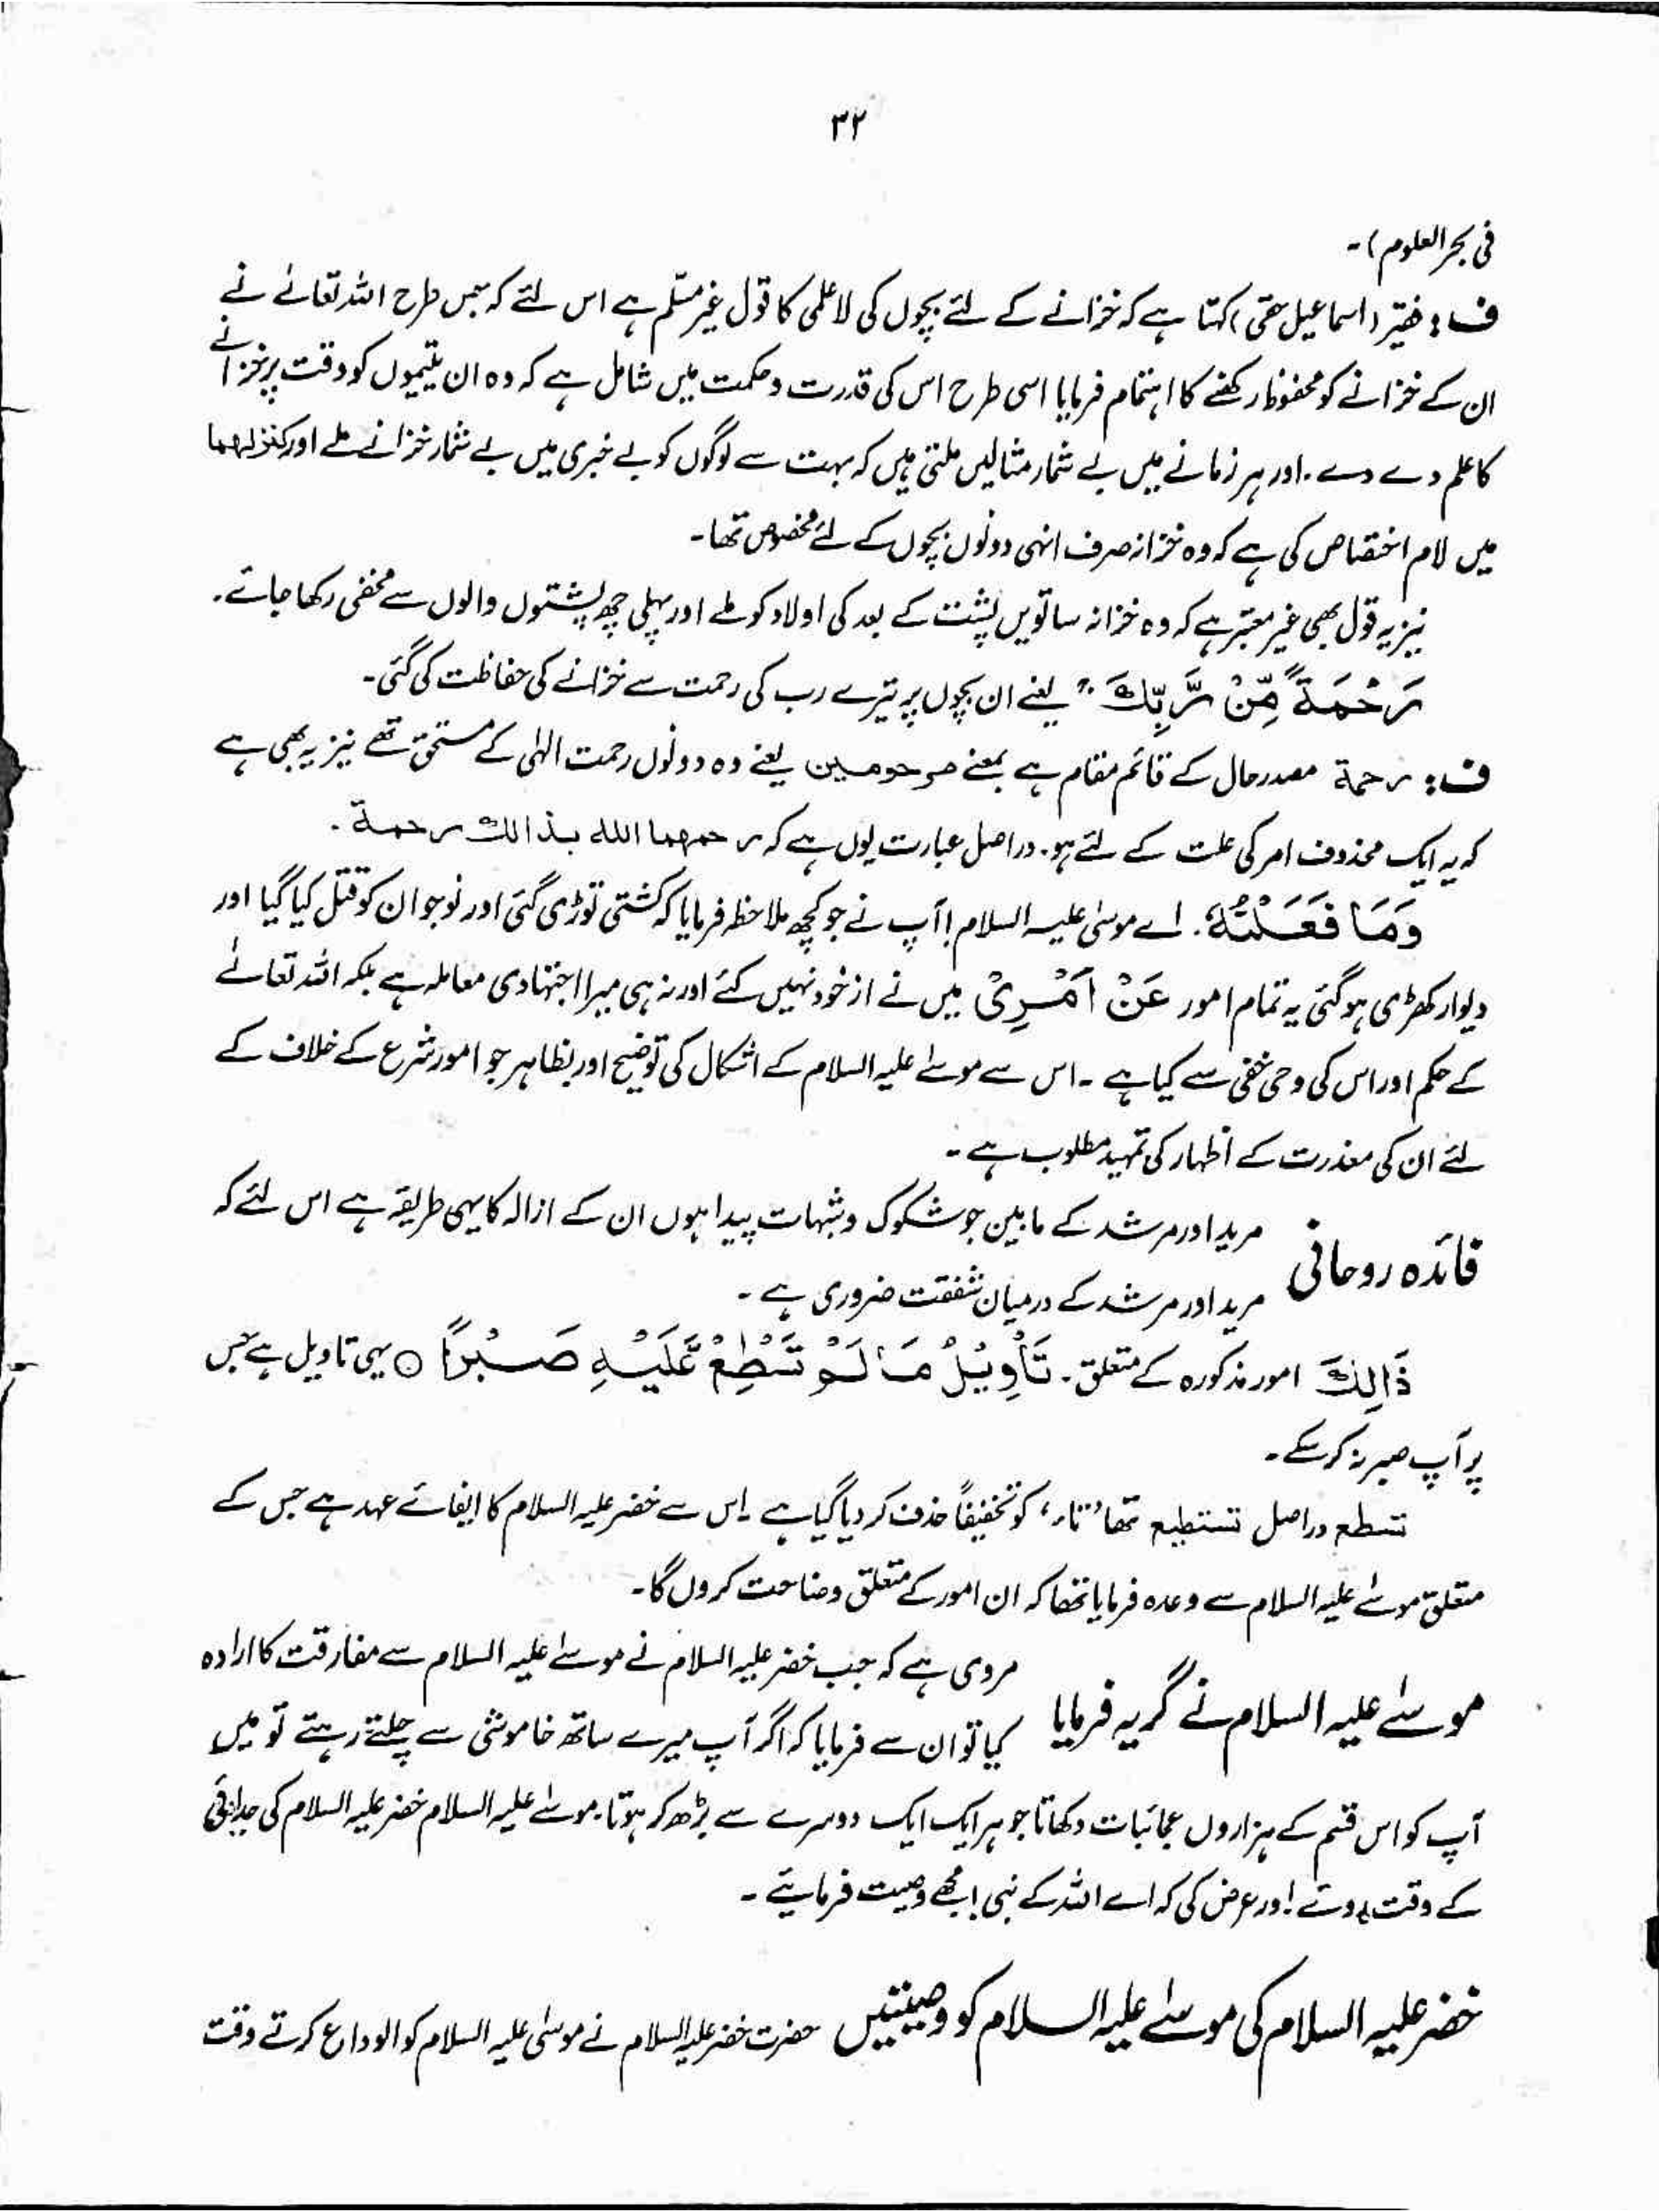 ۳۲
فی بحر العلوم)۔
ف: فقیر (اسماعیل حقی) کہتا ہے کہ خزانے کے لئے بچوں کی لاعلمی کا قول غیر مسلّم ہے اس لئے کہ جس طرح اللہ تعالےٰ نے
ان کے خزانے کو محفوظ رکھنے کا اہتمام فرمایا اسی طرح اس کی قدرت و حکمت میں شامل ہے کہ وہ ان یتیموں کو وقت پر خزانے
کا علم دے دے۔ اور ہر زمانے میں بے شمار مثالیں ملتی ہیں کہ بہت سے لوگوں کو بے خبری میں بے شمار خزانے ملے اور کنز لہما
میں لام اختصاص کی ہے کہ وہ خزانہ صرف انہی دونوں بچوں کے لئے مخصوص تھا۔
نیز یہ قول بھی غیر معتبر ہے کہ وہ خزانہ ساتویں پشت کے بعد کی اولاد کو ملے اور پہلی چھ پشتوں والوں سے مخفی رکھا جائے۔
رَحْمَةً مِّنْ رَّبِّكَ ۚ یعنے ان بچوں پر تیرے رب کی رحمت سے خزانے کی حفاظت کی گئی۔
ف: رحمة مصدر حال کے قائم مقام ہے بمعنے مرحومین یعنے وہ دونوں رحمت الہٰی کے مستحق تھے نیز یہ بھی ہے
کہ یہ ایک محذوف امر کی علت کے لئے ہو۔ دراصل عبارت یوں ہے کہ رحمهما الله بذالك رحمة۔
وَمَا فَعَلْتُهٗ۔ اے موسیٰ علیہ السلام! آپ نے جو کچھ ملاحظہ فرمایا کہ کشتی توڑی گئی اور نوجوان کو قتل کیا گیا اور
دیوار کھڑی ہو گئی یہ تمام امور عَنْ اَمْرِیْ میں نے از خود نہیں کئے اور نہ ہی میرا اجتہادی معاملہ ہے بلکہ اللہ تعالےٰ
کے حکم اور اس کی وحی خفی سے کیا ہے۔ اس سے موسےٰ علیہ السلام کے اشکال کی توضیح اور بظاہر جو امور شرع کے خلاف کے
لئے ان کی معذرت کے اظہار کی تمہید مطلوب ہے۔
فائدہ روحانی مرید اور مرشد کے مابین جو شکوک و شبہات پیدا ہوں ان کے ازالہ کا یہی طریقہ ہے اس لئے کہ
مرید اور مرشد کے درمیان شفقت ضروری ہے۔
ذَالِكَ امور مذکورہ کے متعلق۔ تَاْوِيْلُ مَا لَمْ تَسْطِعْ عَّلَيْهِ صَبْرًا ○ یہی تاویل ہے جس
پر آپ صبر نہ کر سکے۔
تسطع دراصل تستطیع تھا ”تاء“ کو تخفیفاً حذف کر دیا گیا ہے۔ اس سے خضر علیہ السلام کا ایفائے عہد ہے جس کے
متعلق موسےٰ علیہ السلام سے وعدہ فرمایا تھا کہ ان امور کے متعلق وضاحت کروں گا۔
موسےٰ علیہ السلام نے گریہ فرمایا مروی ہے کہ جب خضر علیہ السلام نے موسےٰ علیہ السلام سے مفارقت کا ارادہ
کیا تو ان سے فرمایا کہ اگر آپ میرے ساتھ خاموشی سے چلتے رہتے تو میں
آپ کو اس قسم کے ہزاروں عجائبات دکھاتا جو ہر ایک ایک دوسرے سے بڑھ کر ہوتا۔ موسےٰ علیہ السلام خضر علیہ السلام کی جدائی
کے وقت روئے اور عرض کی کہ اے اللہ کے نبی! مجھے وصیت فرمائیے۔
خضر علیہ السلام کی موسےٰ علیہ السلام کو وصیتیں حضرت خضر علیہ السلام نے موسیٰ علیہ السلام کو الوداع کرتے وقت